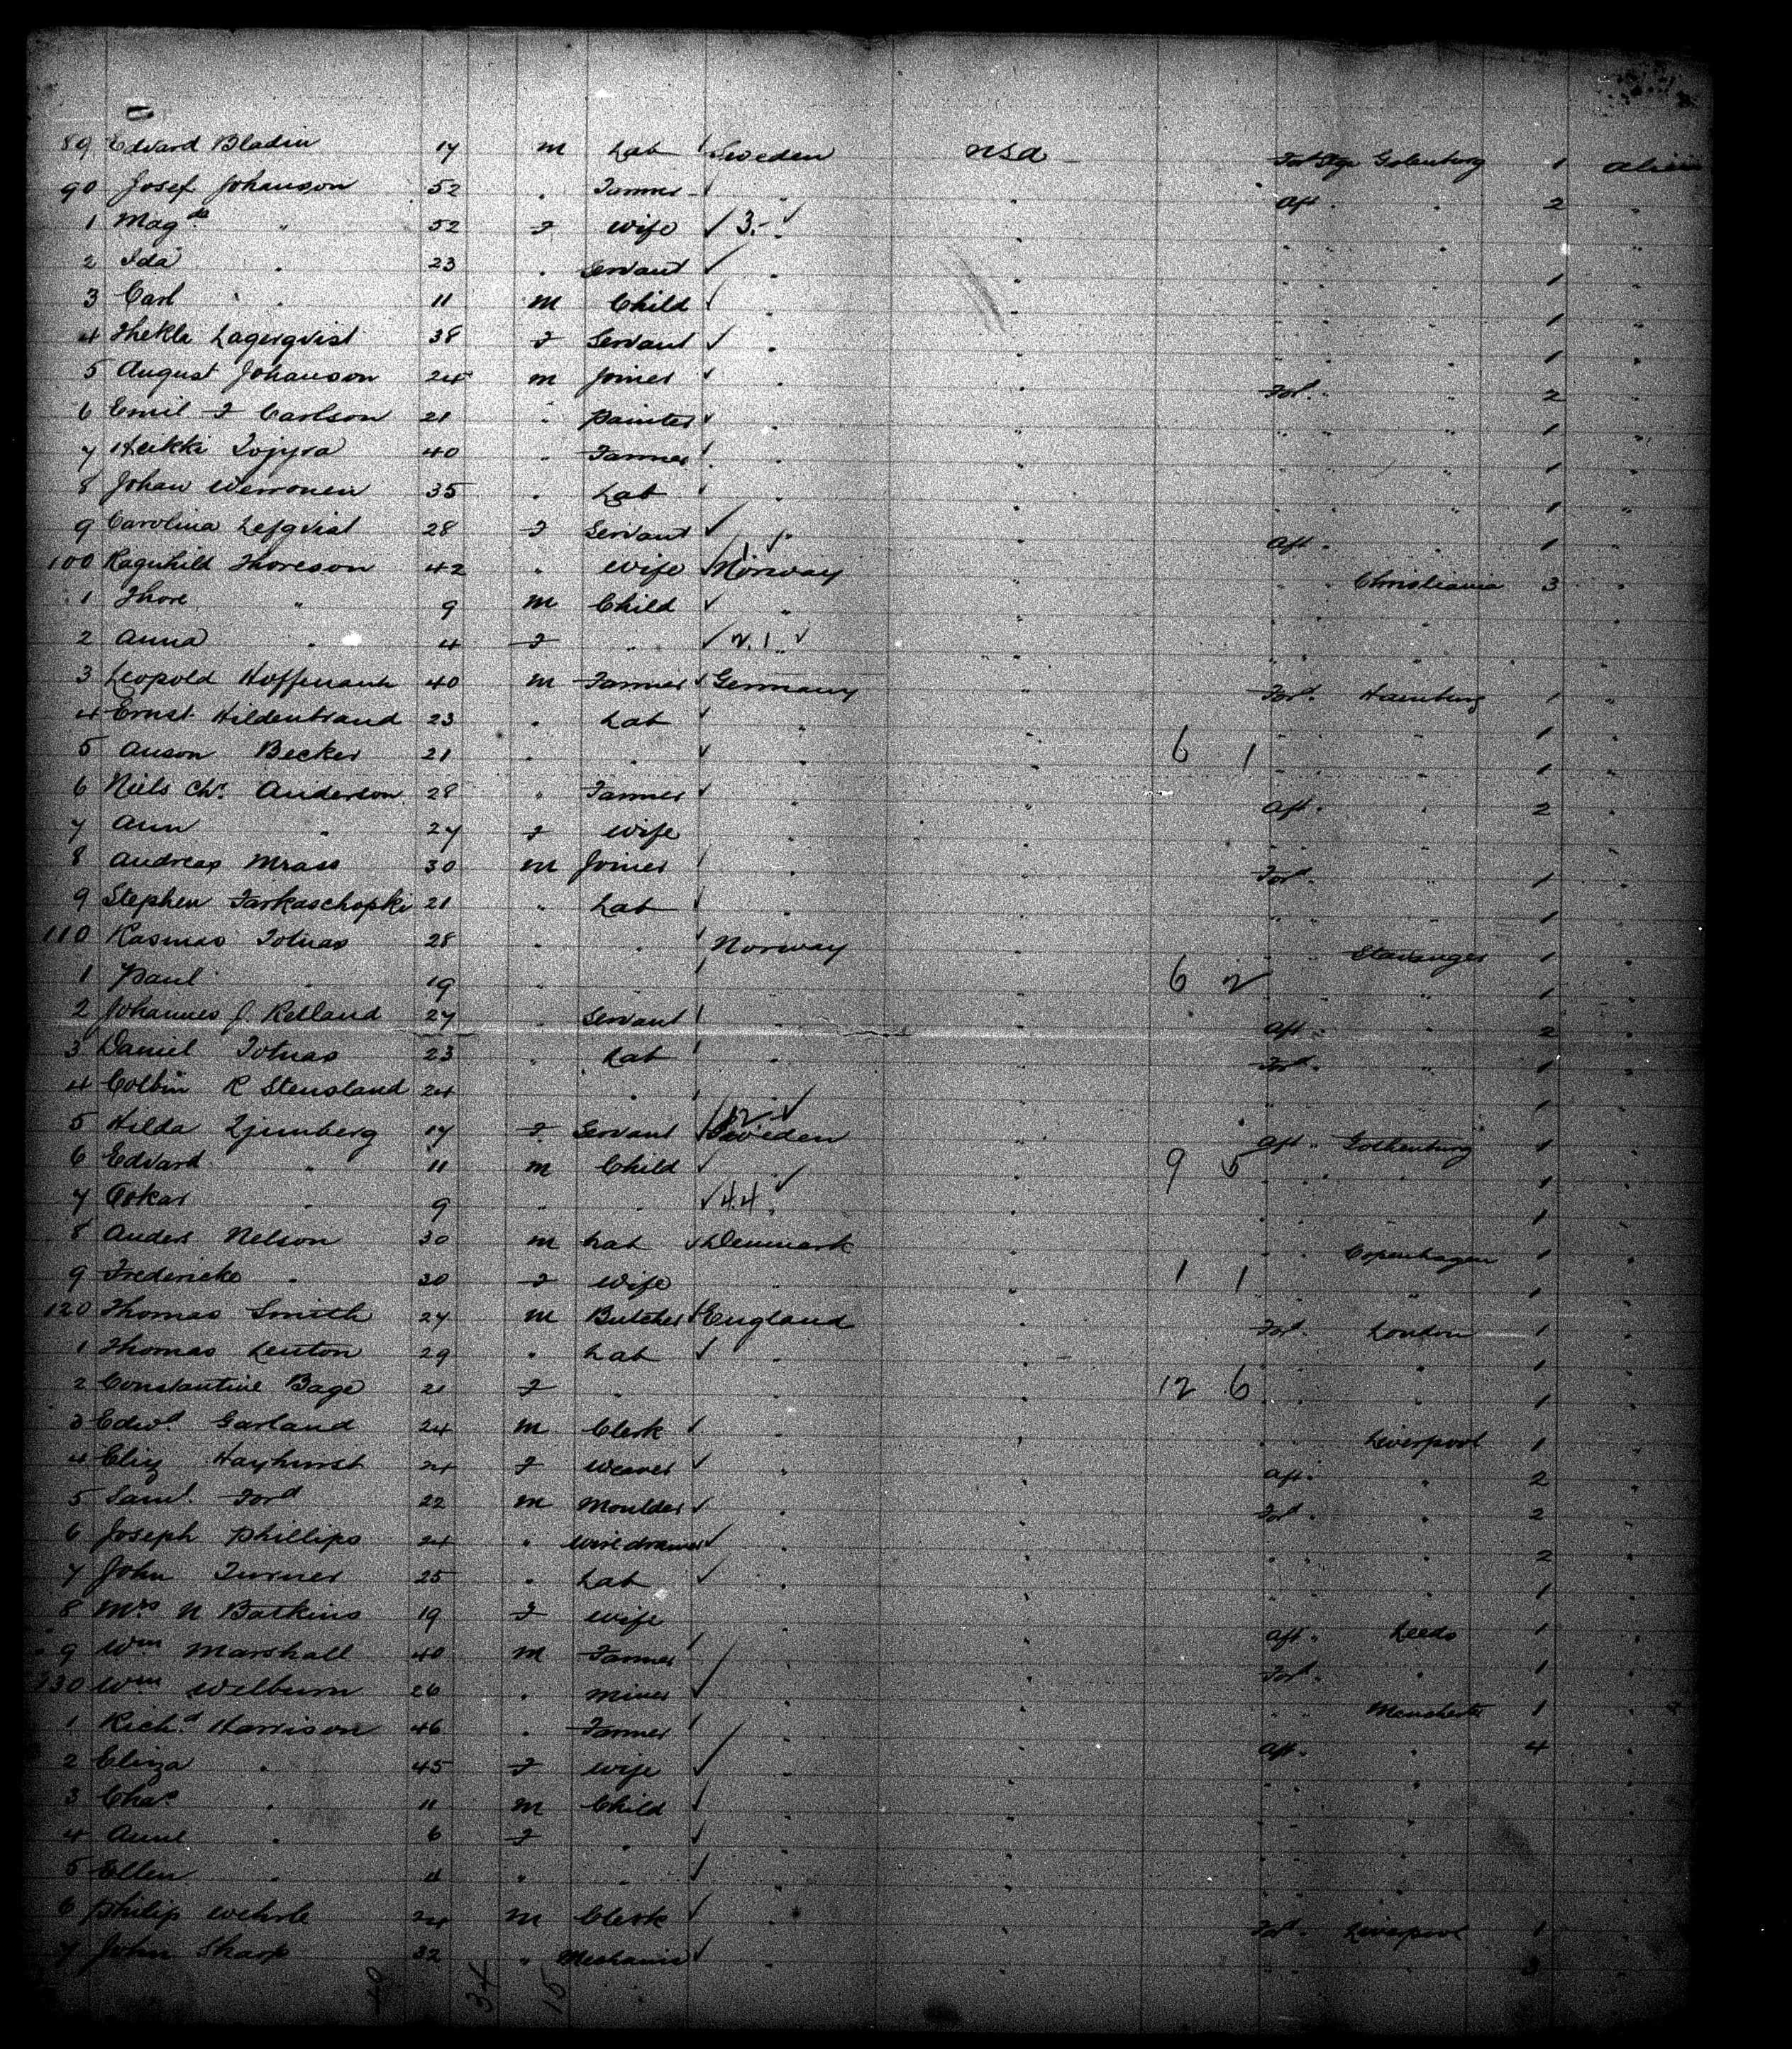 89 Edvard Bladin 17 m Lab Sweden USA Gotenburg 1 Alien
90 Josef Johanson 52 " Farmer " " Aft " " 2 "
1 Magda " 52 F wife 3 " " " " "
2 Ida " 23 " Servant " " " " 1 "
3 Carl " 11 m Child " " " " 1 "
4 Thekla Lagerqvist 38 F Servant " " " " 1 "
5 August Johanson 24 m Joiner " " Ford " " 2 "
6 Emil F Carlson 21 " Painter " " " " " 1 "
7 Heikki 40 " Farmer " " " " 1 "
8 Johan 35 " Lab " " 1 "
9 Carolina 28 F Servant " " Aft " " 1 "
100 Ragnhild Thoreson 42 " wife 1 Norway " " " Christiania 3 "
1 Thore " 9 m Child " " " "
2 Anna " 4 F " 2.1 " " " " " "
3 Leopold Hoffmann 40 m Farmer Germany " Ford Hamburg 1 "
4 Ernst Hildenbrand 23 " Lab " " " " " 1 "
5 Anson Becker 21 " " " " 6 1 " " " 1 "
6 Niels Chr. Anderson 28 " Farmer " " Aft " " 2 "
7 Ann " 27 F wife " " " " " "
8 Andreas Mrass 30 m Joiner " " Ford " 1 "
9 Stephen Farkaschopki 21 " Lab " " " " " 1 "
110 Rasmus Totnas 28 " " Norway " " " Stavanger 1 "
1 Paul " 19 " " " " 6 2 " " " 1 "
2 Johannes J. Retland 27 " Servant " " Aft " " 2 "
3 Daniel Totnas 23 " Lab " " Ford " " 1 "
4 Colbin R Stensland 24 " " " " " " 1 "
5 Hilda Ljunberg 17 F Servant 12 Sweden " Aft " Gothenburg 1 "
6 Edvard " 11 m Child " " 9 5 " " " 1 "
7 Oskar " 9 " " 4.4 " " " " 1 "
8 Anders Nelson 30 m Lab Denmark " " " Copenhagen 1 "
9 Fredericke " 20 F wife " " 1 1 " " " 1 "
120 Thomas Smith 27 m Butcher England " Ford London 1 "
1 Thomas Lenton 29 " Lab " " " " " 1 "
2 Constantine Bage 21 F " " " 12 6 " " " 1 "
3 Edwd. Garland 24 m Clerk " " " " Liverpool 1 "
4 Eliz Hayhurst 24 F Weaver " " Aft " " 2 "
5 Saml. Ford 22 m Moulder " " Ford " " 2 "
6 Joseph Phillips 24 " Wiredrawer " " " " " 2 "
7 John Turner 25 " Lab " " " " " 1 "
8 Mrs N Batkins 19 F wife " " Aft " Leeds 1 "
9 Wm Marshall 40 m Farmer " " Ford " " 1 "
130 Wm Welburn 26 " Miner " " " " Manchester 1 "
1 Richd Harrison 46 " Farmer " " Aft " " 4 "
2 Eliza " 45 F wife " " " " " "
3 Chas " 11 m Child " " " " " "
4 Anne " 6 F " " " " " " "
5 Ellen " 4 " " " " " " " "
6 Philip Wehrle 24 m Clerk " " Ford Liverpool 1 "
7 John Sharp 32 " Mechanic " " " " " 3 "
34 15